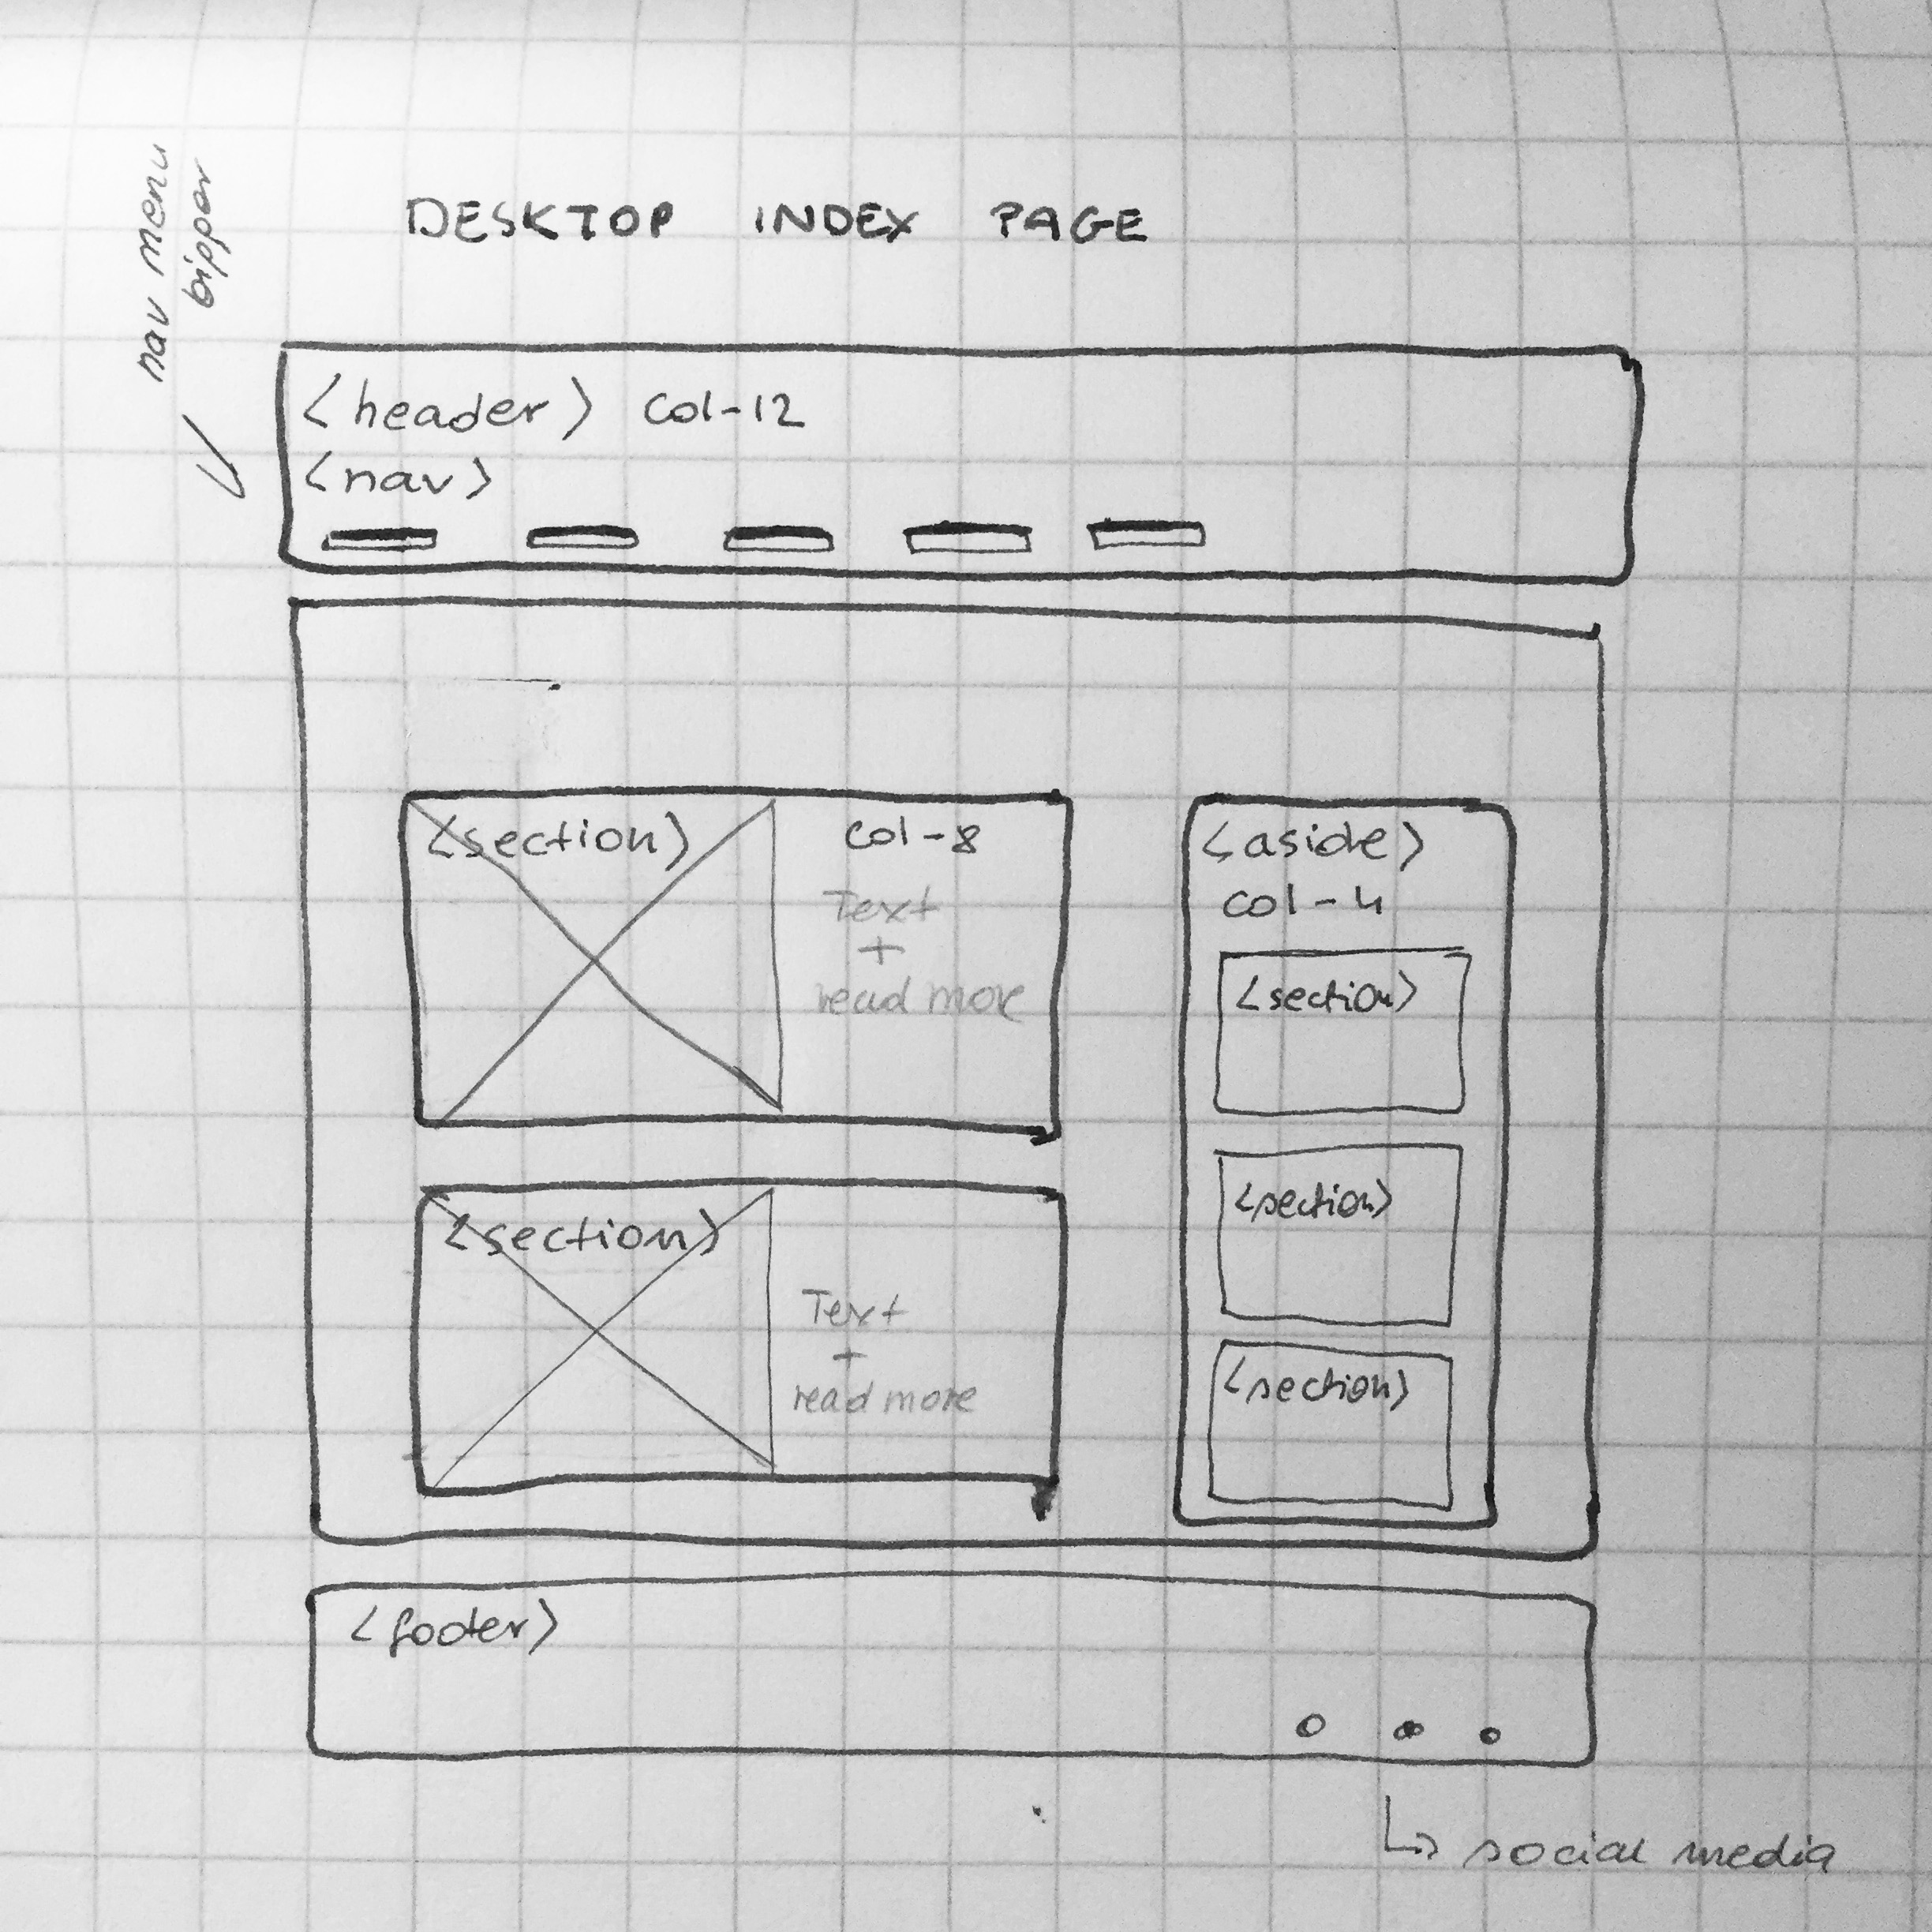 nav menu
bigger
DESKTOP INDEX PAGE
<header> col-12
<nav>
<section> col-8
Text
+
read more
<section>
Text
+
read more
<aside>
col-4
<section>
<section>
<section>
<footer>
social media